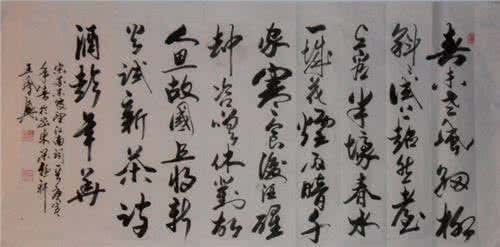 春未老風細柳
斜々試上超然臺
上看半壕春水
一城花煙雨暗千
家寒食後酒醒
卻咨嗟休對故
人思故國且將新
火試新茶詩
酒趁年華
宋蘇東坡望江南詞庚寅